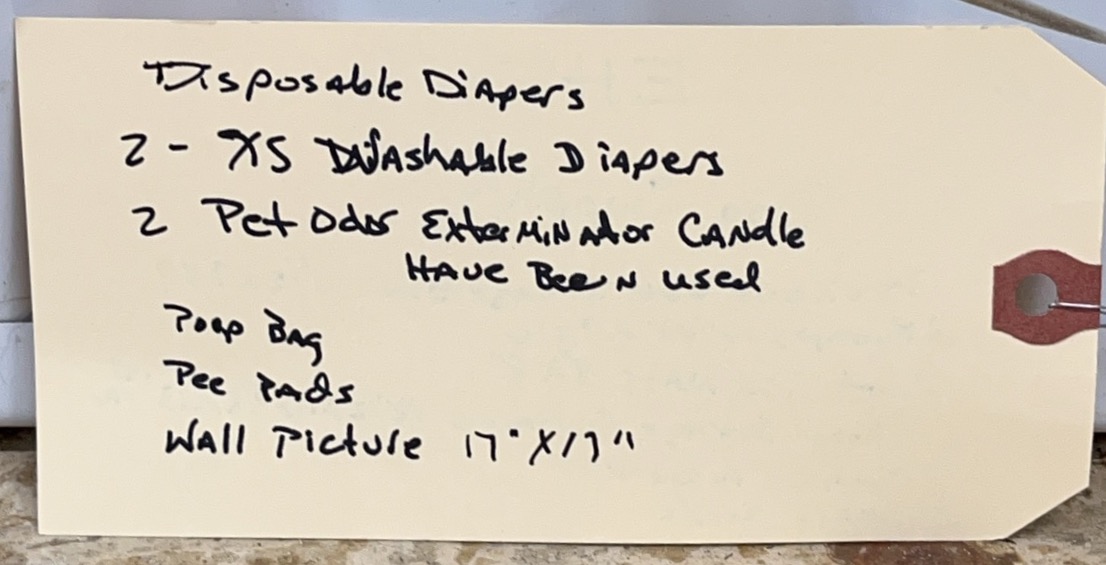 Disposable Diapers
2 - XS Washable Diapers
2 Pet Odor Exterminator Candle
Have Been used
Poop Bag
Pee Pads
Wall Picture 17" X 17"